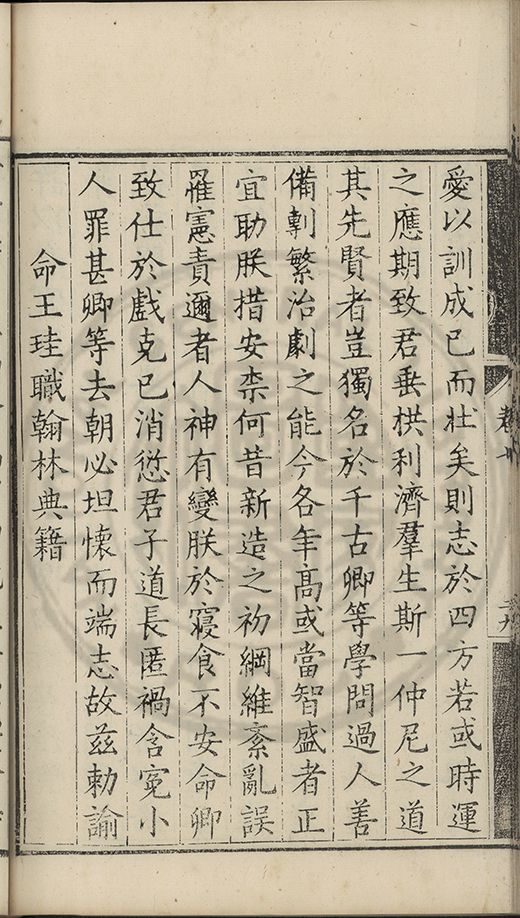 愛以訓成已而壯矣則志於四方若或時運
之應期致君垂拱利濟羣生斯一仲尼之道
其先賢者豈獨名於千古卿等學問過人善
備剸繁治劇之能今各年高或當智盛者正
宜助朕措安柰何昔新造之初綱維紊亂誤
罹憲責邇者人神有變朕於寢食不安命卿
致仕於戲克已消愆君子道長匿禍含冤小
人罪甚卿等去朝必坦懷而端志故茲勅諭
命王珪職翰林典籍